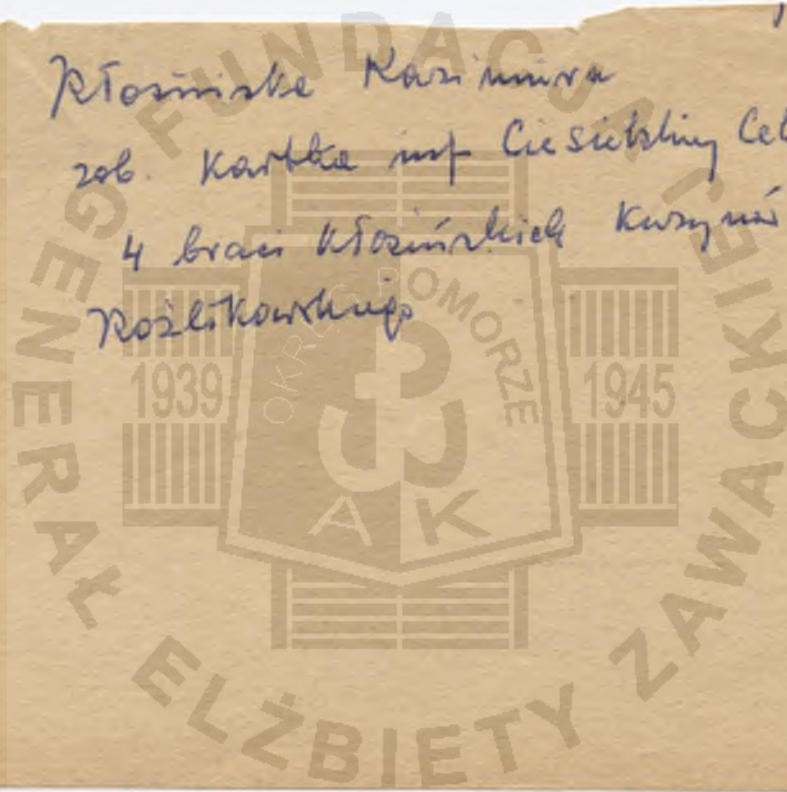 Kłosińska Kazimiera
zob. Kartka inf Ciesielskiej Cel
4 braci Kłosińskich Kuzynów
Rożlikowskiego
FUNDACJA
GENERAŁ ELŻBIETY ZAWACKIEJ
OKRĘG POMORZE
1939
1945
AK